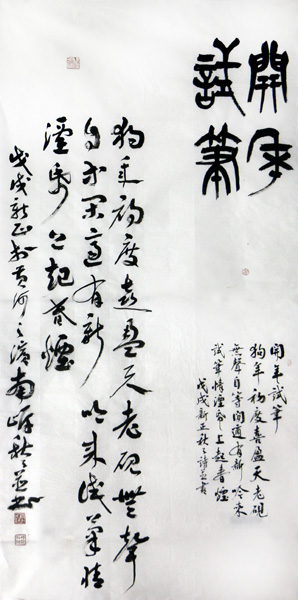 開年
試筆
開年試筆
狗年初度喜盈天老硯
無聲自等閒適有新吟來
試筆情湮紙上起春煙
戊戌新正秋之詩並書
狗年初度喜盈天老硯無聲
自等閒適有新吟來試筆情
湮紙上起春煙
戊戌新正於黃河之濱南秋之並書